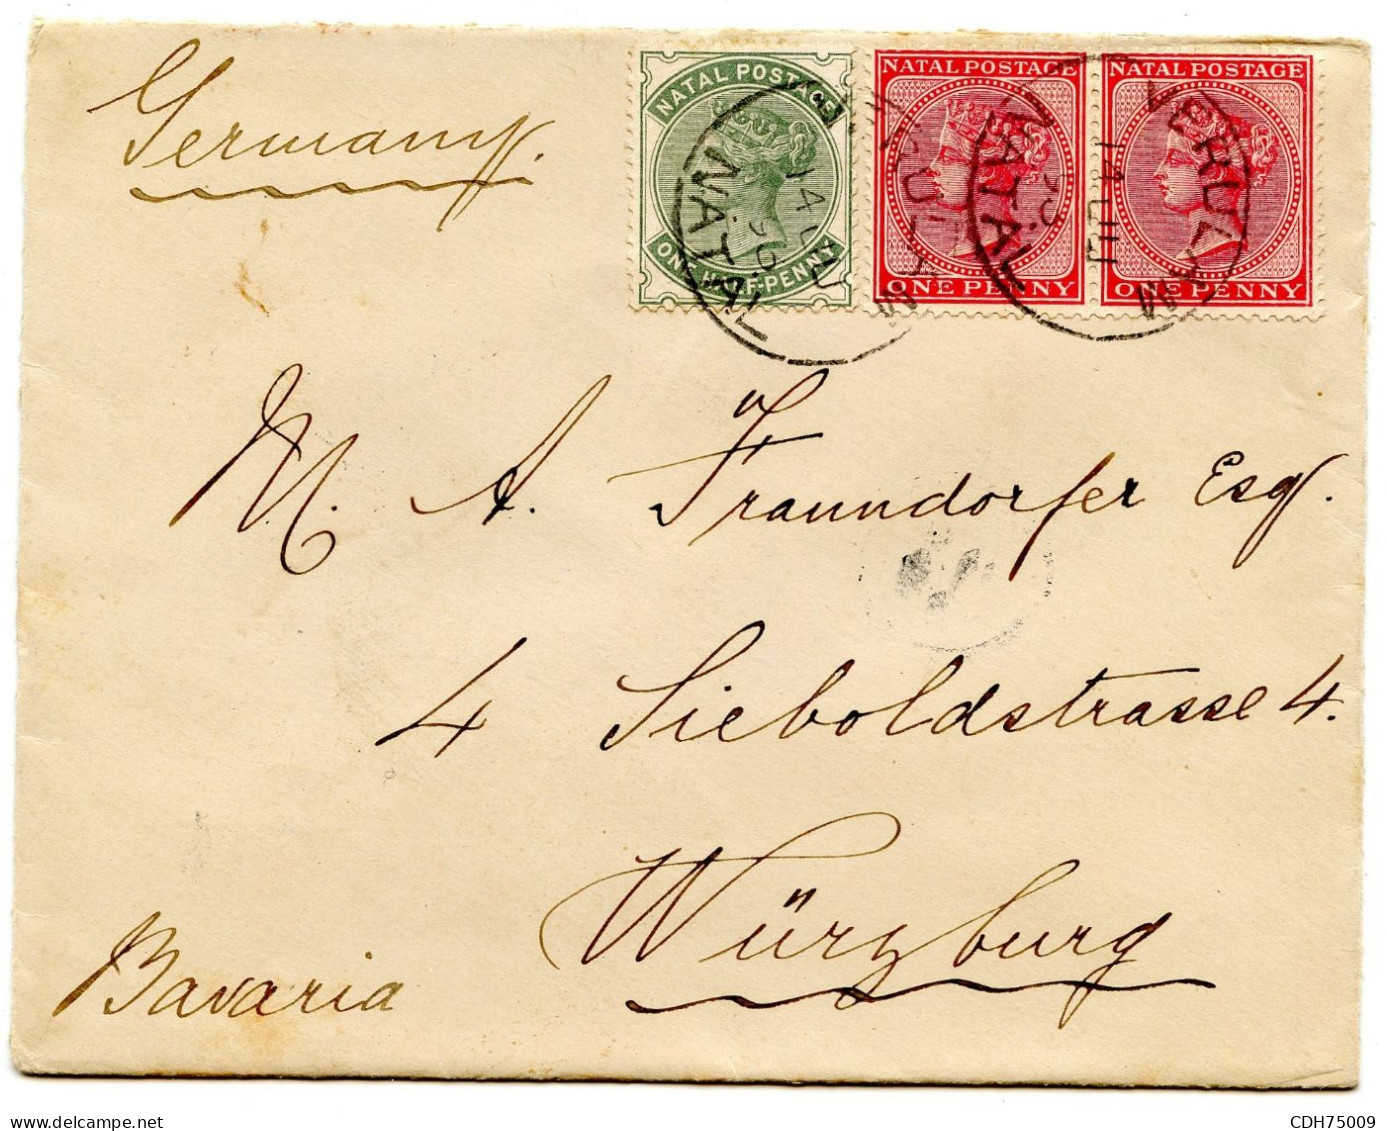 Germany.
NATAL POSTAGE
ONE HALF-PENNY
NATAL POSTAGE
ONE PENNY
NATAL POSTAGE
ONE PENNY
VERULAM
NATAL
NATAL
M. A. Fraundorfer Esq.
4 Sieboldstrasse 4.
Würzburg
Bavaria
delcampe.net
CDH75009